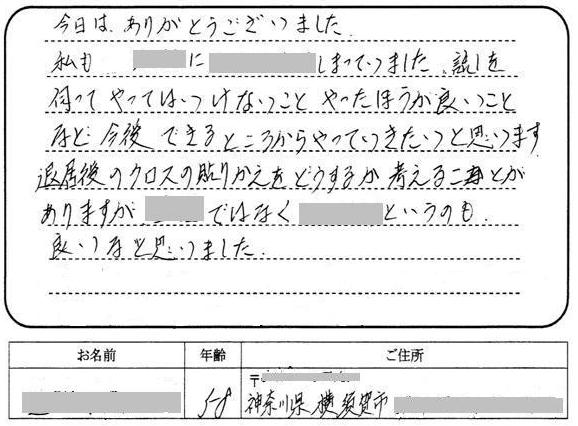 今日は、ありがとうございました。
私も に しまっていました。話しを
伺って やってはいけないこと やったほうが良いこと
など 今後 できるところからやっていきたいと思います
退居後のクロスの貼りかえをどうするか 考えることが
ありますが ではなく というのも、
良いなと思いました。
お名前 年齢 ご住所
58 〒
神奈川県 横須賀市